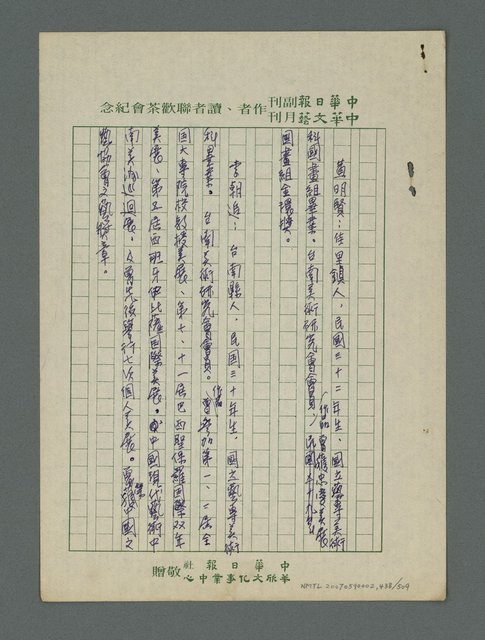 中華日報副刊
中華文藝月刊
作者、讀者聯歡茶會紀念
黃明賢：佳里鎮人，民國三十二年生，國立藝專美術
科國畫組畢業。台南美術研究會會員，作品曾獲忠孝美展
國畫組金環獎。
李朝進：台南縣人，民國三十年生，國立藝專美術
科畢業。台南美術研究會會員。作品曾參加第一、二屆全
國大專院校教授美展、第七、十一屆巴西聖保羅國際双年
美展、第五屆西班牙伊比薩國際美展。中國現代藝術中
南美洲巡迴展，及曾先後舉行七次個人美展。曾獲中國文
藝協會文藝獎章。
中華日報社
華欣文化事業中心
敬贈
NMTL 20070590002.438/509